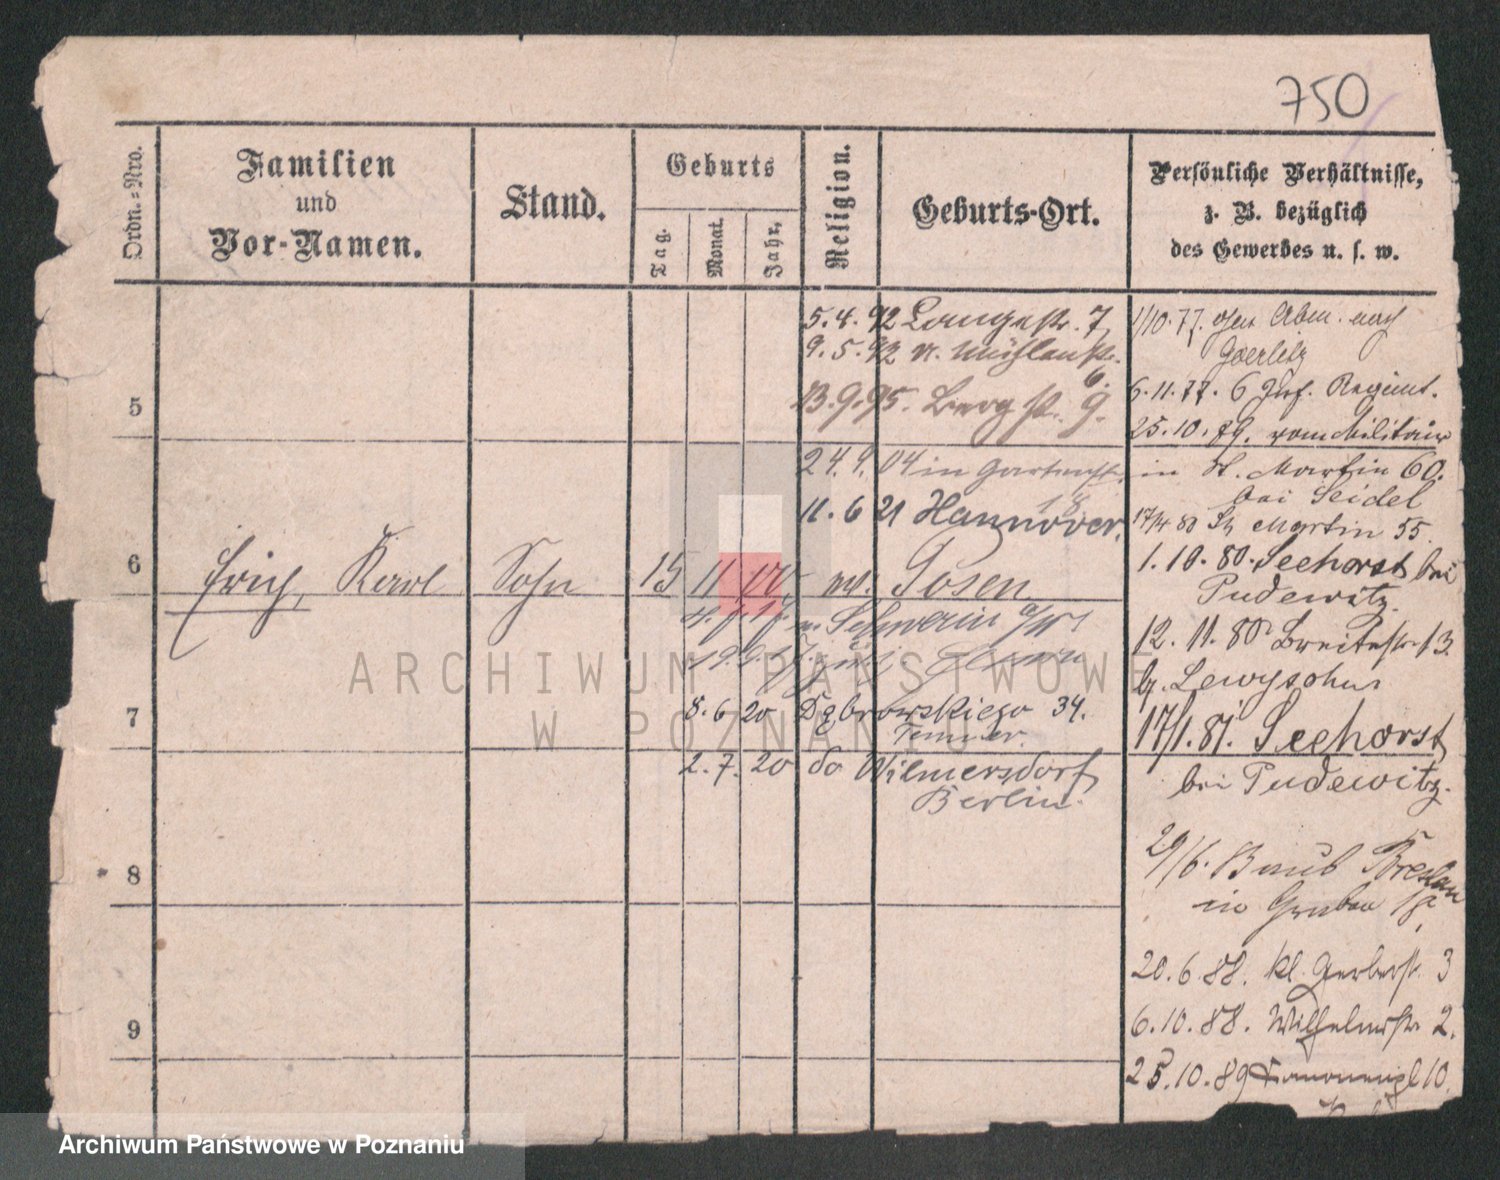 750
Ordn.=Nro.
Familien
und
Vor-Namen.
Stand.
Geburts
Tag.
Monat.
Jahr.
Religion.
Geburts-Ort.
Persönliche Verhältnisse,
z. B. bezüglich
des Gewerbes u. s. w.
5
5.4.92 Langestr. 7
9.5.92 St. Mühlenstr.
6.
13.9.95. Berg str. 9.
24.9.04 in Gartenstr.
18
11. 6 21 Hannover.
6
Erich, Karl Sohn 15 11 ev. Posen
Schwerin a/W
7
8. 6 20 Dąbrowskiego 34.
2. 7. 20 do Wilmersdorf
Berlin.
8
9
1/10.77. nach
Goerlitz
6.11.77. 6 Inf. Regimt.
25.10.79. vom Militair
in St. Martin 60.
bei Seidel
17/4 80 St Martin 55.
1.10.80. Seehorst bei
Pudewitz.
12. 11. 80 Breitestr. 13.
b. Lewysohn
17/1.81. Seehorst
bei Pudewitz.
29/6. Breslau
in
20.6.88. kl. Gerberstr. 3
6.10.88. Wilhelmstr 2.
25.10.89 10.
ARCHIWUM PAŃSTWOWE
W POZNANIU
Archiwum Państwowe w Poznaniu